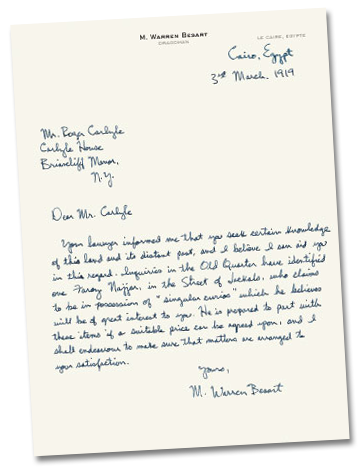 M. WARREN BESART
DRAGOMAN
LE CAIRE, EGYPTE
Cairo, Egypt
3rd March, 1919
Mr. Roger Carlyle
Carlyle House
Briarcliff Manor,
N.Y.
Dear Mr. Carlyle
Your lawyer informed me that you seek certain knowledge
of this land and its distant past, and I believe I can aid you
in this regard. Inquiries in the Old Quarter have identified
one Faraz Najjar, in the Street of Jackals, who claims
to be in possession of "singular curios" which he believes
will be of great interest to you. He is prepared to part with
these items if a suitable price can be agreed upon, and I
shall endeavour to make sure that matters are arranged to
your satisfaction.
Yours,
M. Warren Besart